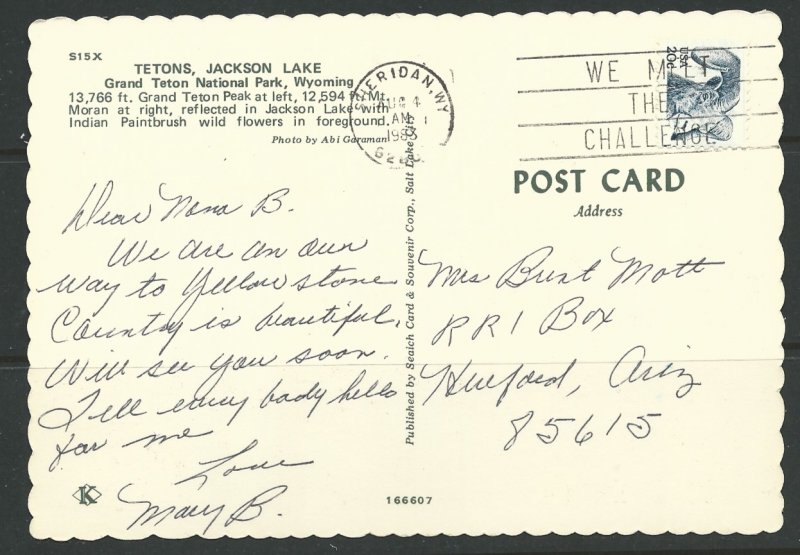 S15X
TETONS, JACKSON LAKE
Grand Teton National Park, Wyoming
13,766 ft. Grand Teton Peak at left, 12,594 ft. Mt.
Moran at right, reflected in Jackson Lake with
Indian Paintbrush wild flowers in foreground.
Photo by Abi Garaman
SHERIDAN, WY
AUG 4
AM
1983
WE MEET
THE
CHALLENGE
USA
20c
POST CARD
Address
Dear Nana B.
We are on our
way to Yellowstone
Country is beautiful.
Will see you soon.
Tell every body hello
for me
Love
Mary B.
Published by Seaich Card & Souvenir Corp., Salt Lake City
Mrs Burt Mott
RR 1 Box
Hereford, Ariz
85615
K
166607